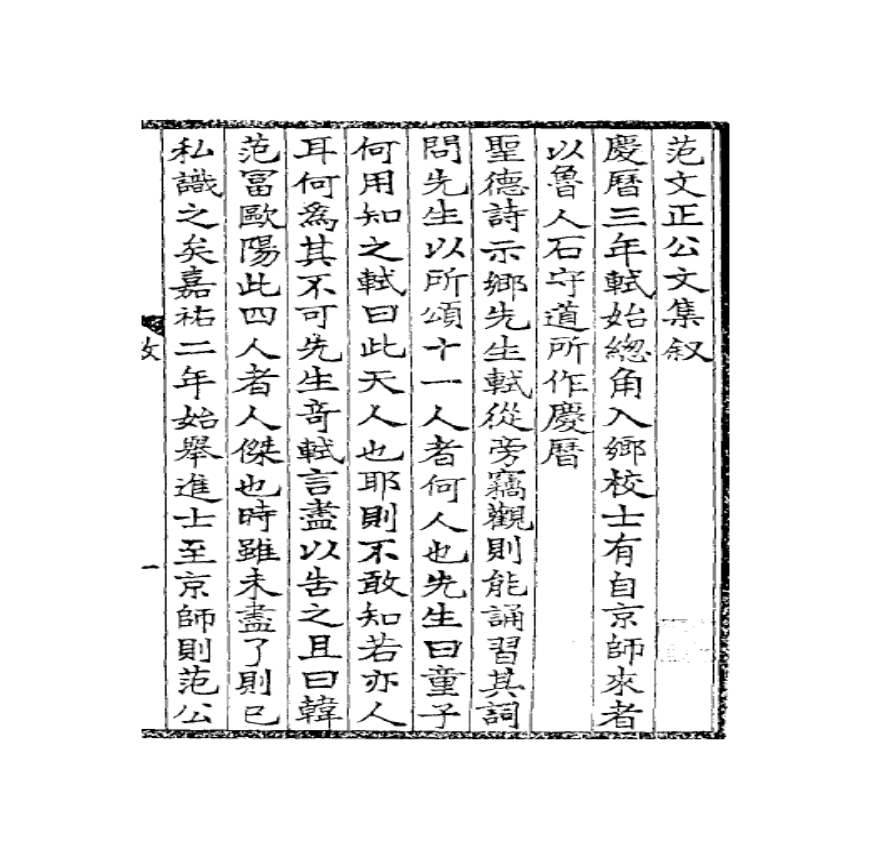 范文正公文集叙
慶曆三年軾始緫角入鄉校士有自京師來者
以魯人石守道所作慶曆
聖德詩示鄉先生軾從旁竊觀則能誦習其詞
問先生以所頌十一人者何人也先生曰童子
何用知之軾曰此天人也耶則不敢知若亦人
耳何爲其不可先生竒軾言盡以告之且曰韓
范冨歐陽此四人者人傑也時雖未盡了則已
私識之矣嘉祐二年始舉進士至京師則范公
一